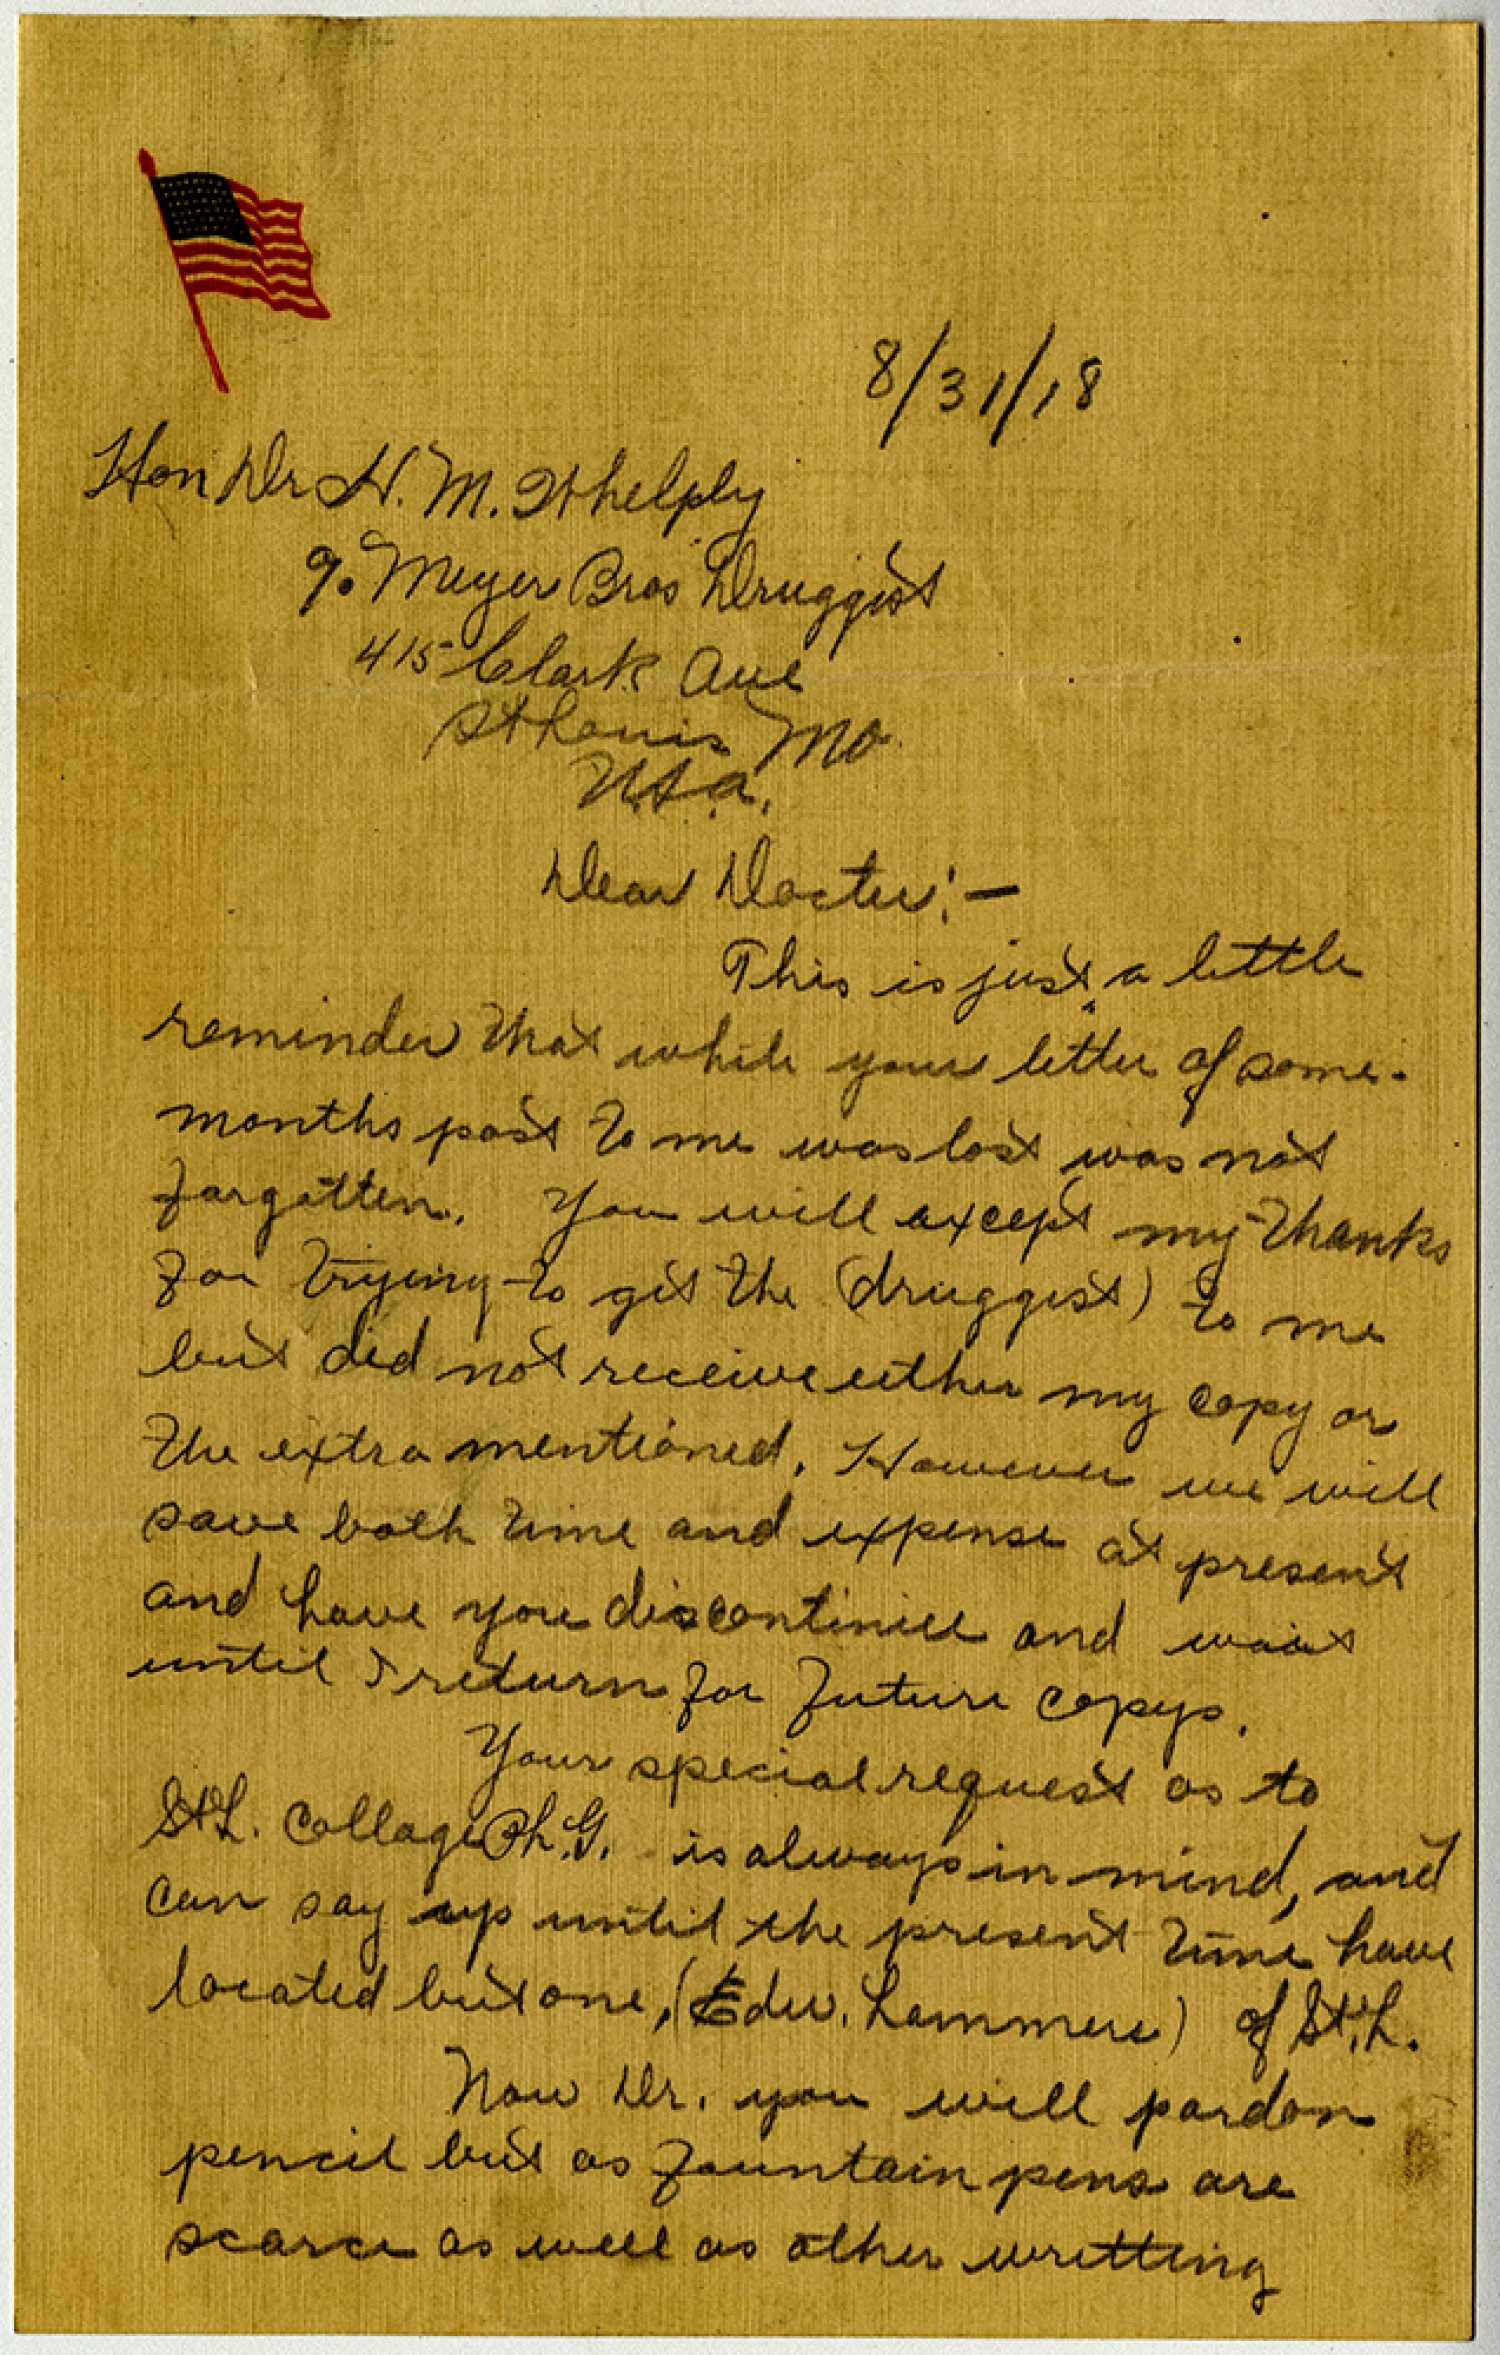 8/31/18
Hon Dr H. M. Whelply
c/o Meyer Bros Druggist
415 Clark Ave
St Louis Mo
U.S.a.
Dear Docter:—
This is just a little
reminder that while your letter of some-
months past to me was lost was not
forgotten. You will except my thanks
for trying to get the (druggist) to me
but did not receive either my copy or
the extra mentioned. However we will
save both time and expense at present
and have you discontinue and wait
until I return for future copys.
Your special request as to
St L. Collage Ph.G. is always in mind, and
can say up until the present time have
located but one, (Edw. Lammers) of St. L.
Now Dr. you will pardon
pencil but as fountain pens are
scarce as well as other writting